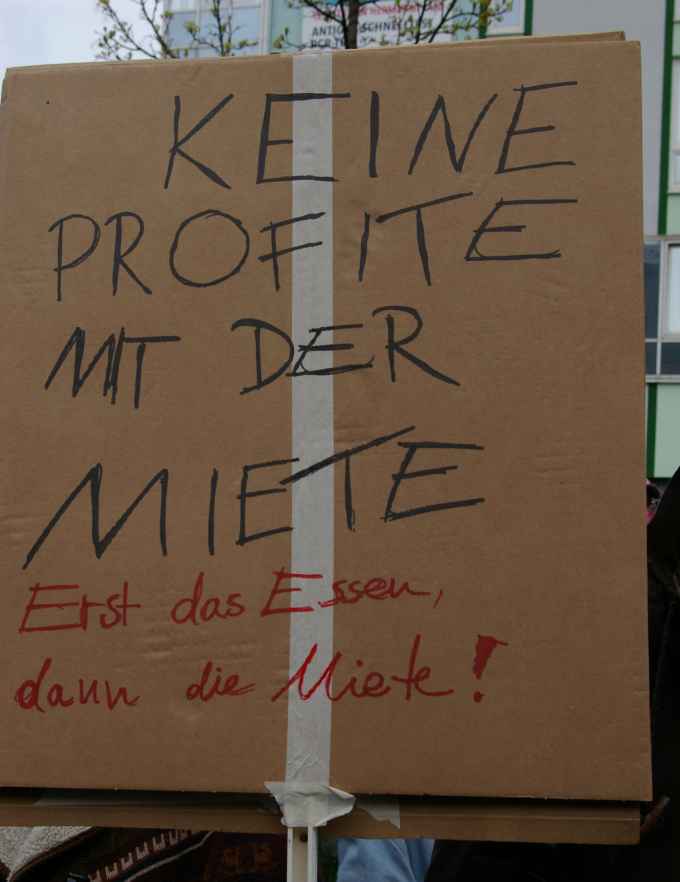 ANTIG SCHNEL
KEINE
PROFITE
MIT DER
MIETE
Erst das Essen,
dann die Miete!